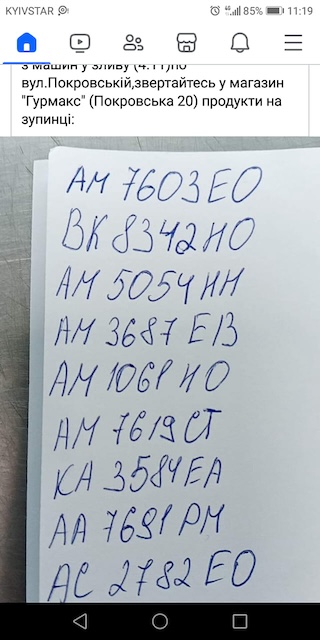 KYIVSTAR
4G
85%
11:19
вул.Покровській,звертайтесь у магазин
"Гурмакс" (Покровська 20) продукти на
зупинці:
АМ 7603ЕО
ВК 8342НО
АМ 5054НН
АМ 3687 ЕІВ
АМ 1061 НО
АМ 7619СТ
КА 3584ЕА
АА 7691РМ
АС 2782 ЕО